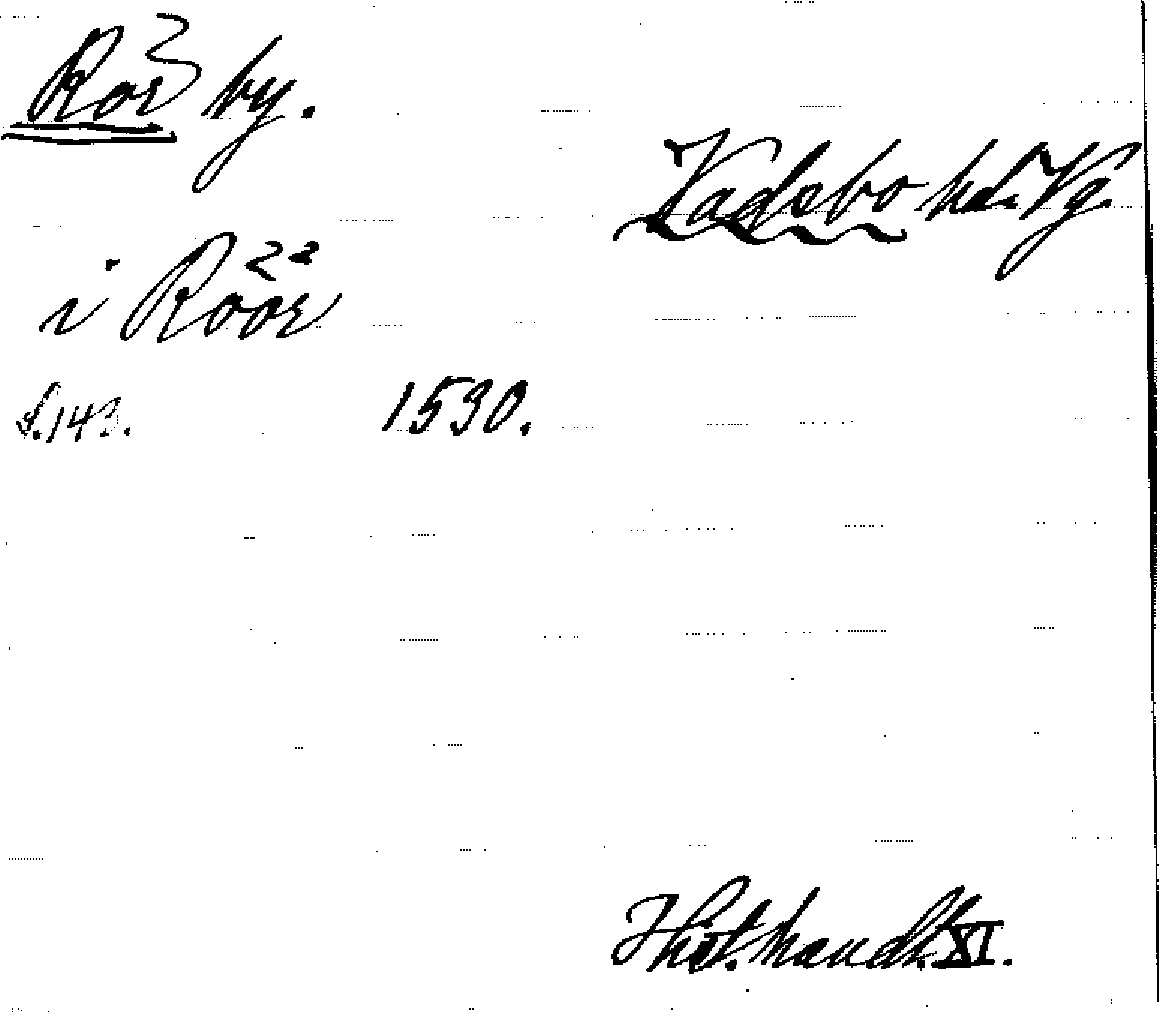 Ror by.
Vadsbo hd. Vg.
i Roor
s. 143. 1530.
Hist. handl. XI.